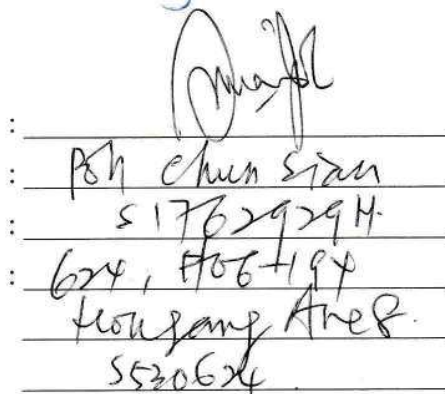 :
: Poh Chun Sian
: S1762929H.
: 624, #06-194
Hougang Ave 8.
S530624.